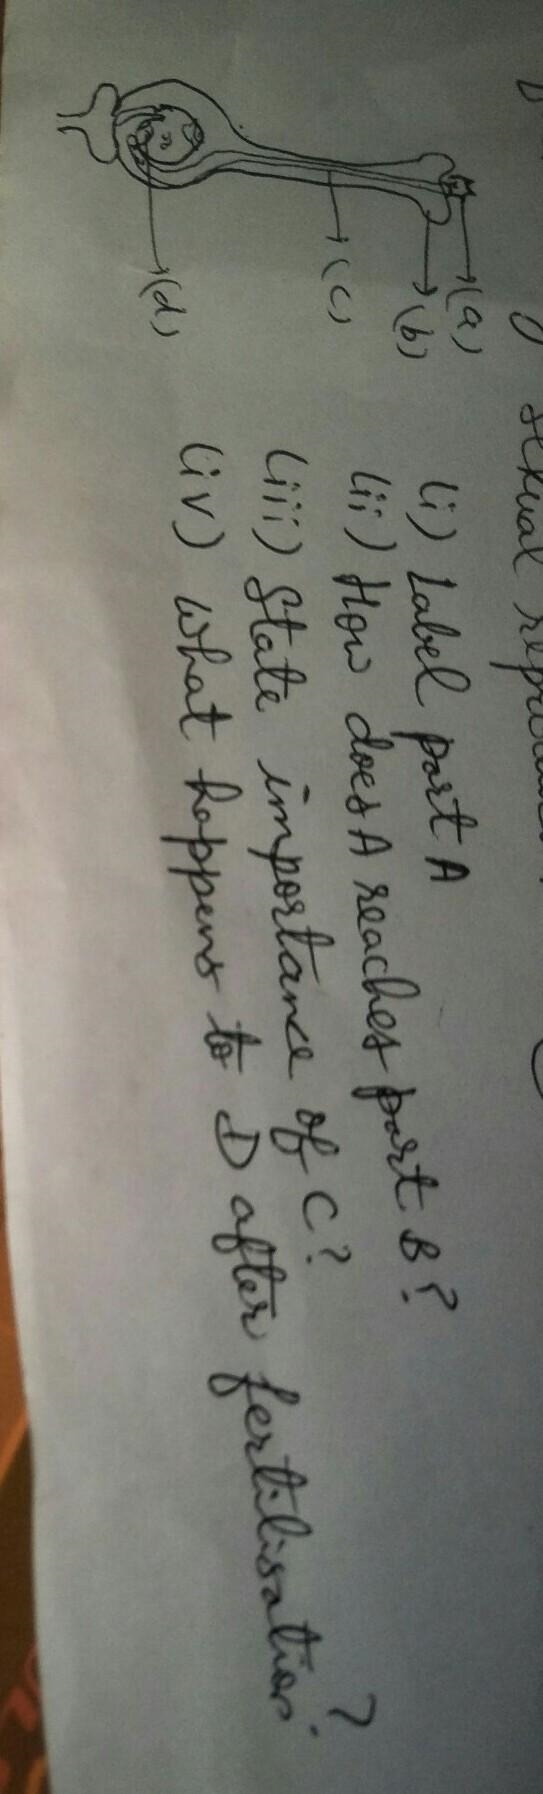 sexual
(a)
(b)
(c)
(d)
(i) Label part A
(ii) How does A reaches part B?
(iii) State importance of C?
(iv) What happens to D after fertilisation?